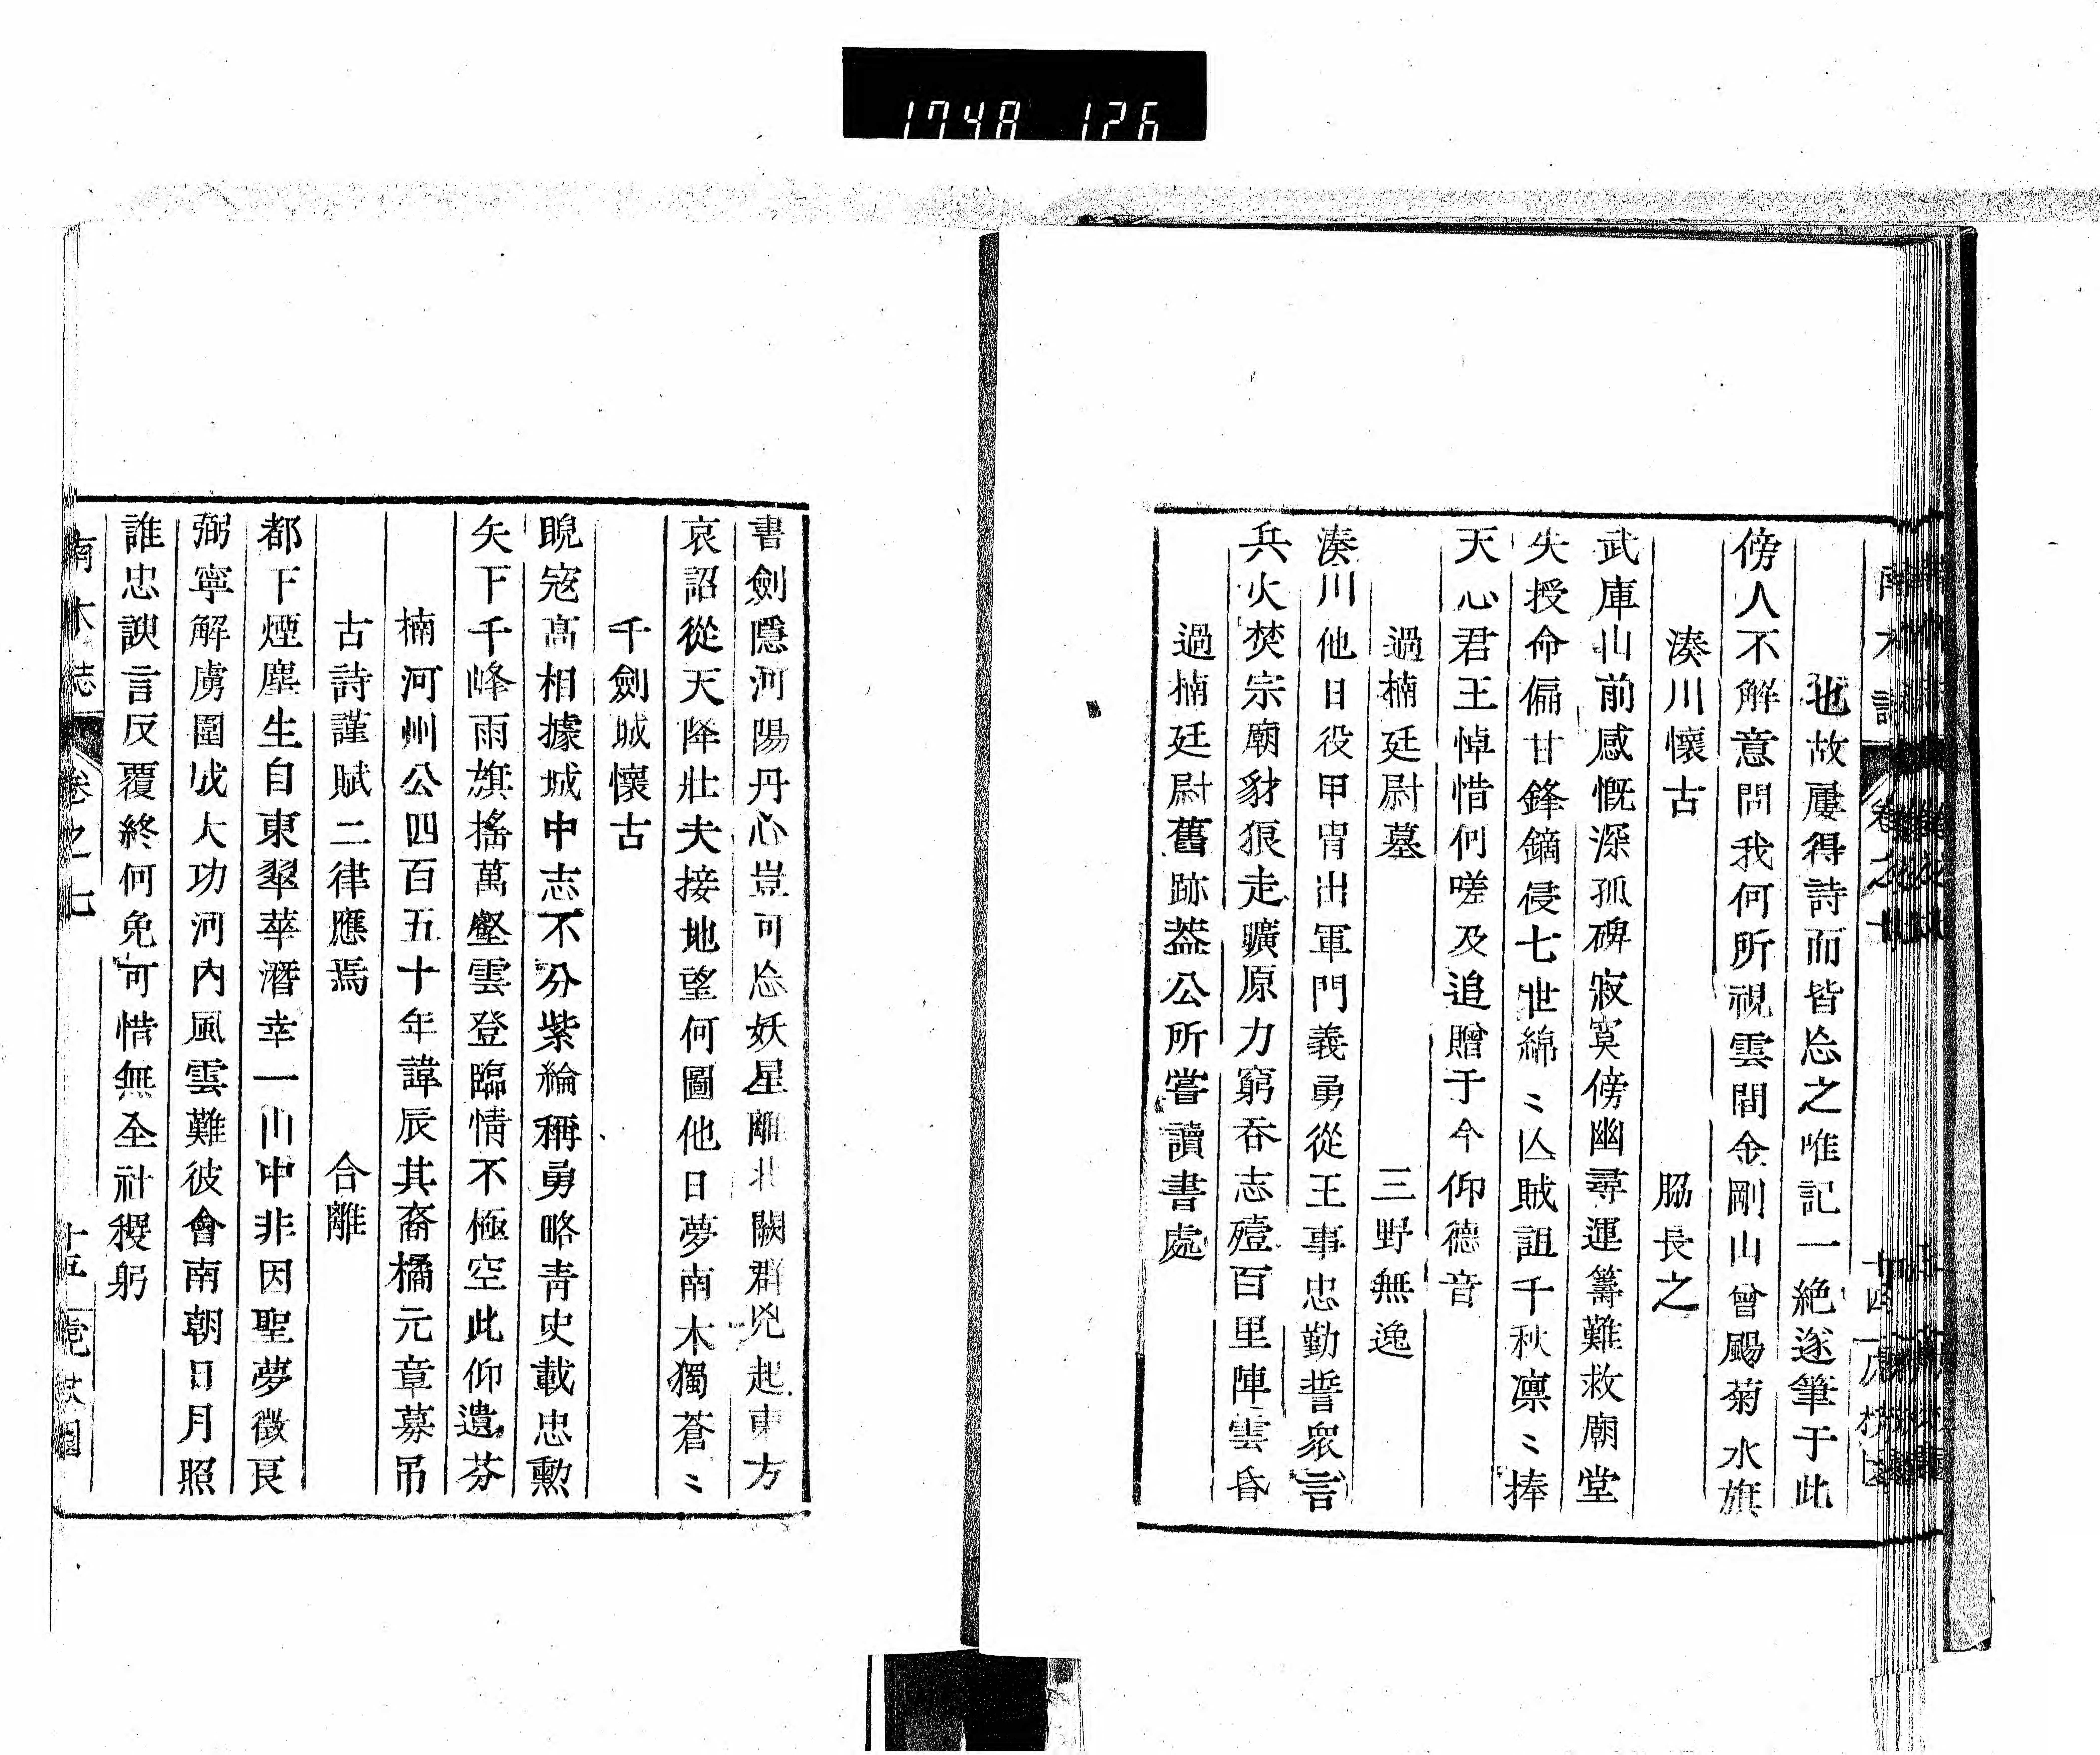 1748 126
也故屢得詩而皆忘之唯記一絶遂筆于此
傍人不解意問我何所視雲間金剛山曾颺菊水旗
湊川懷古 脇長之
武庫山前感慨深孤碑寂寞傍幽尋運籌難救廟堂
失授命偏甘鋒鏑侵七世綿〻亾賊詛千秋凛〻捧
天心君王悼惜何嗟及追贈于今仰德音
過楠廷尉墓 三野無逸
湊川他日役甲冑出軍門義勇從王事忠勤誓衆言
兵火焚宗廟豺狼走曠原力窮吞志殪百里陣雲昏
過楠廷尉舊跡葢公所嘗讀書處
書劍隱河陽丹心豈可忘妖星離北闕群兇起東方
哀詔從天降壯夫接地望何圖他日夢南木獨蒼〻
千劍城懷古
睨寇高相據城中志不分紫綸稱勇略靑史載忠勳
矢下千峰雨旗搖萬壑雲登臨情不極空此仰遺芬
楠河州公四百五十年諱辰其裔橘元章募吊
古詩謹賦二律應焉 合離
都下煙塵生自東翠華潛幸一山中非因聖夢徵良
弼寧解虜圍成大功河内風雲難彼會南朝日月照
誰忠諛言反覆終何免可惜無全社稷躬
南木誌 卷之七 十五